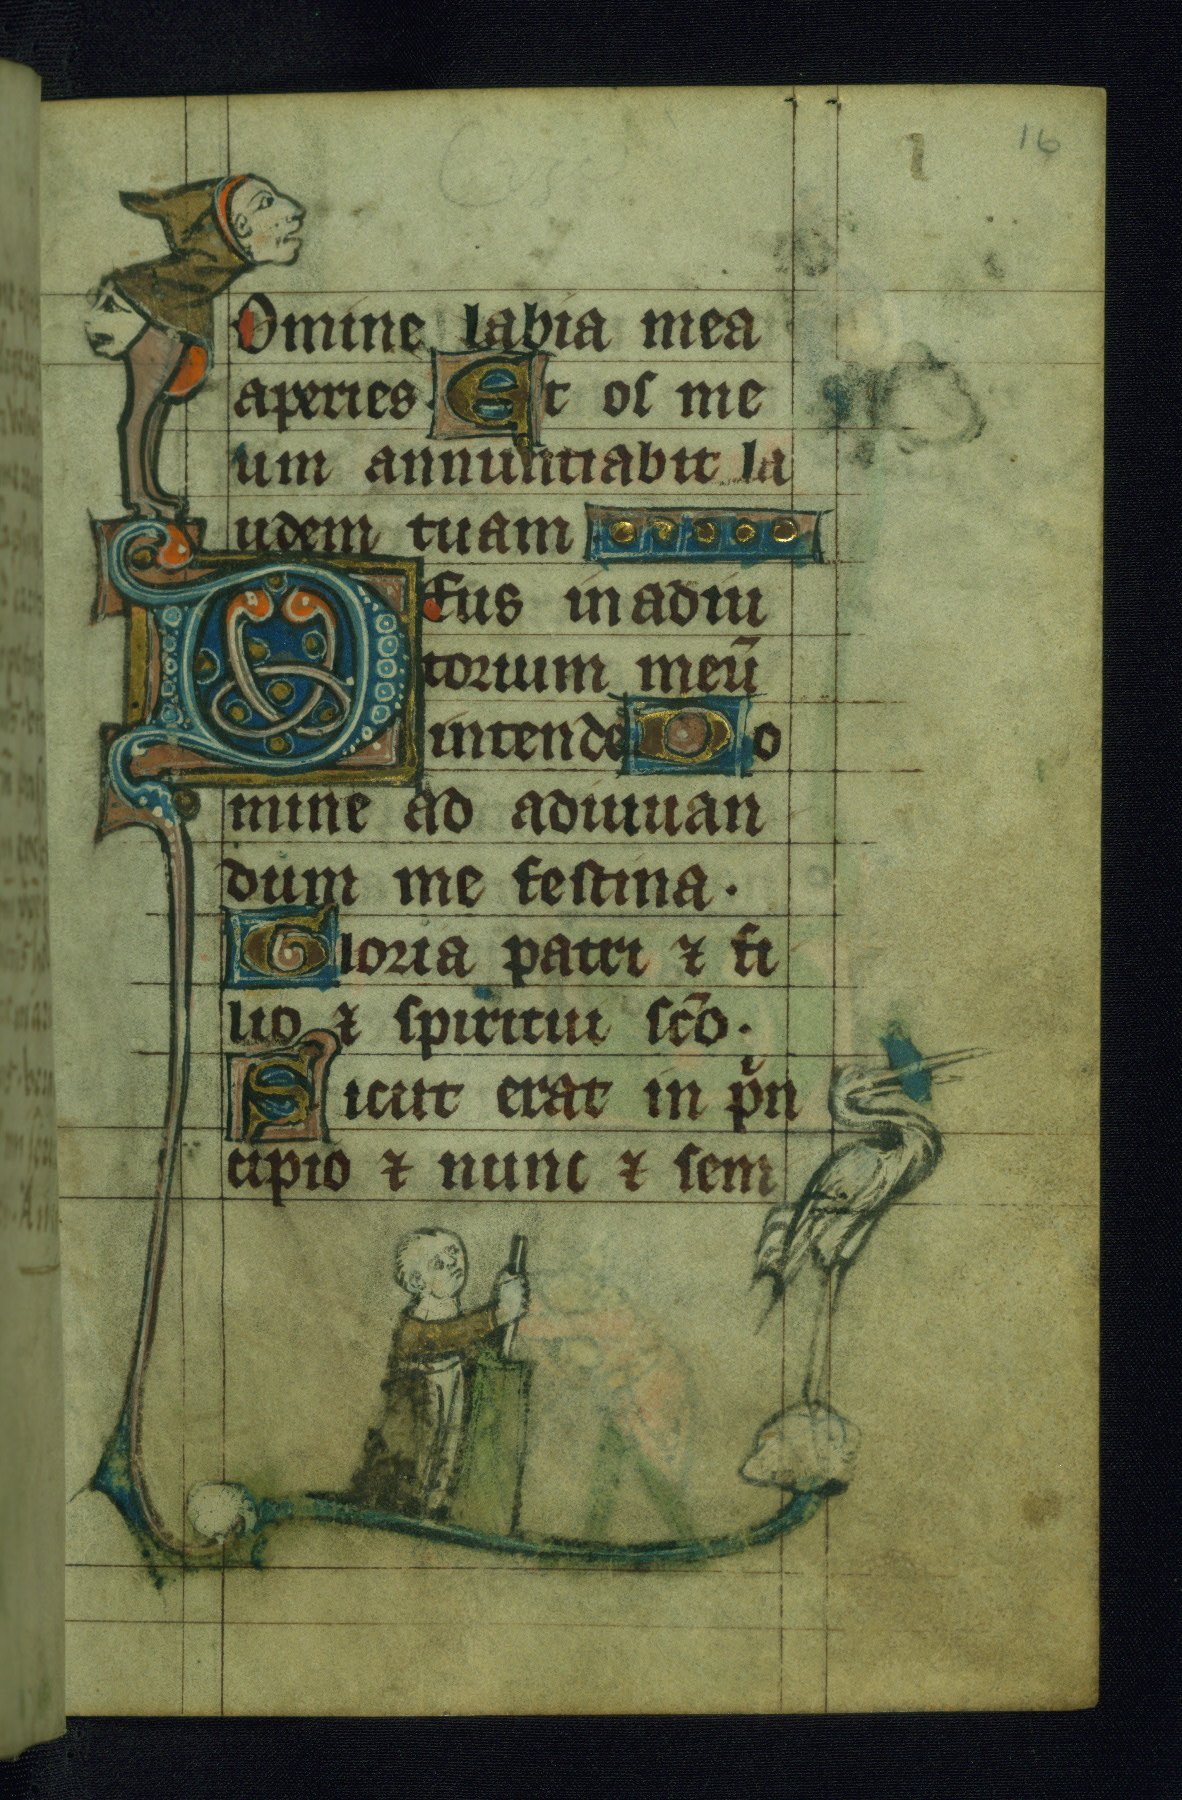 16
Domine labia mea
aperies. Et os me
um annuntiabit la
udem tuam
Deus in adiu
torium meū
intende Do
mine ad adiuuan
dum me festina.
Gloria patri ⁊ fi
lio ⁊ spiritui sc̄o.
Sicut erat in pͥn
cipio ⁊ nunc ⁊ sem